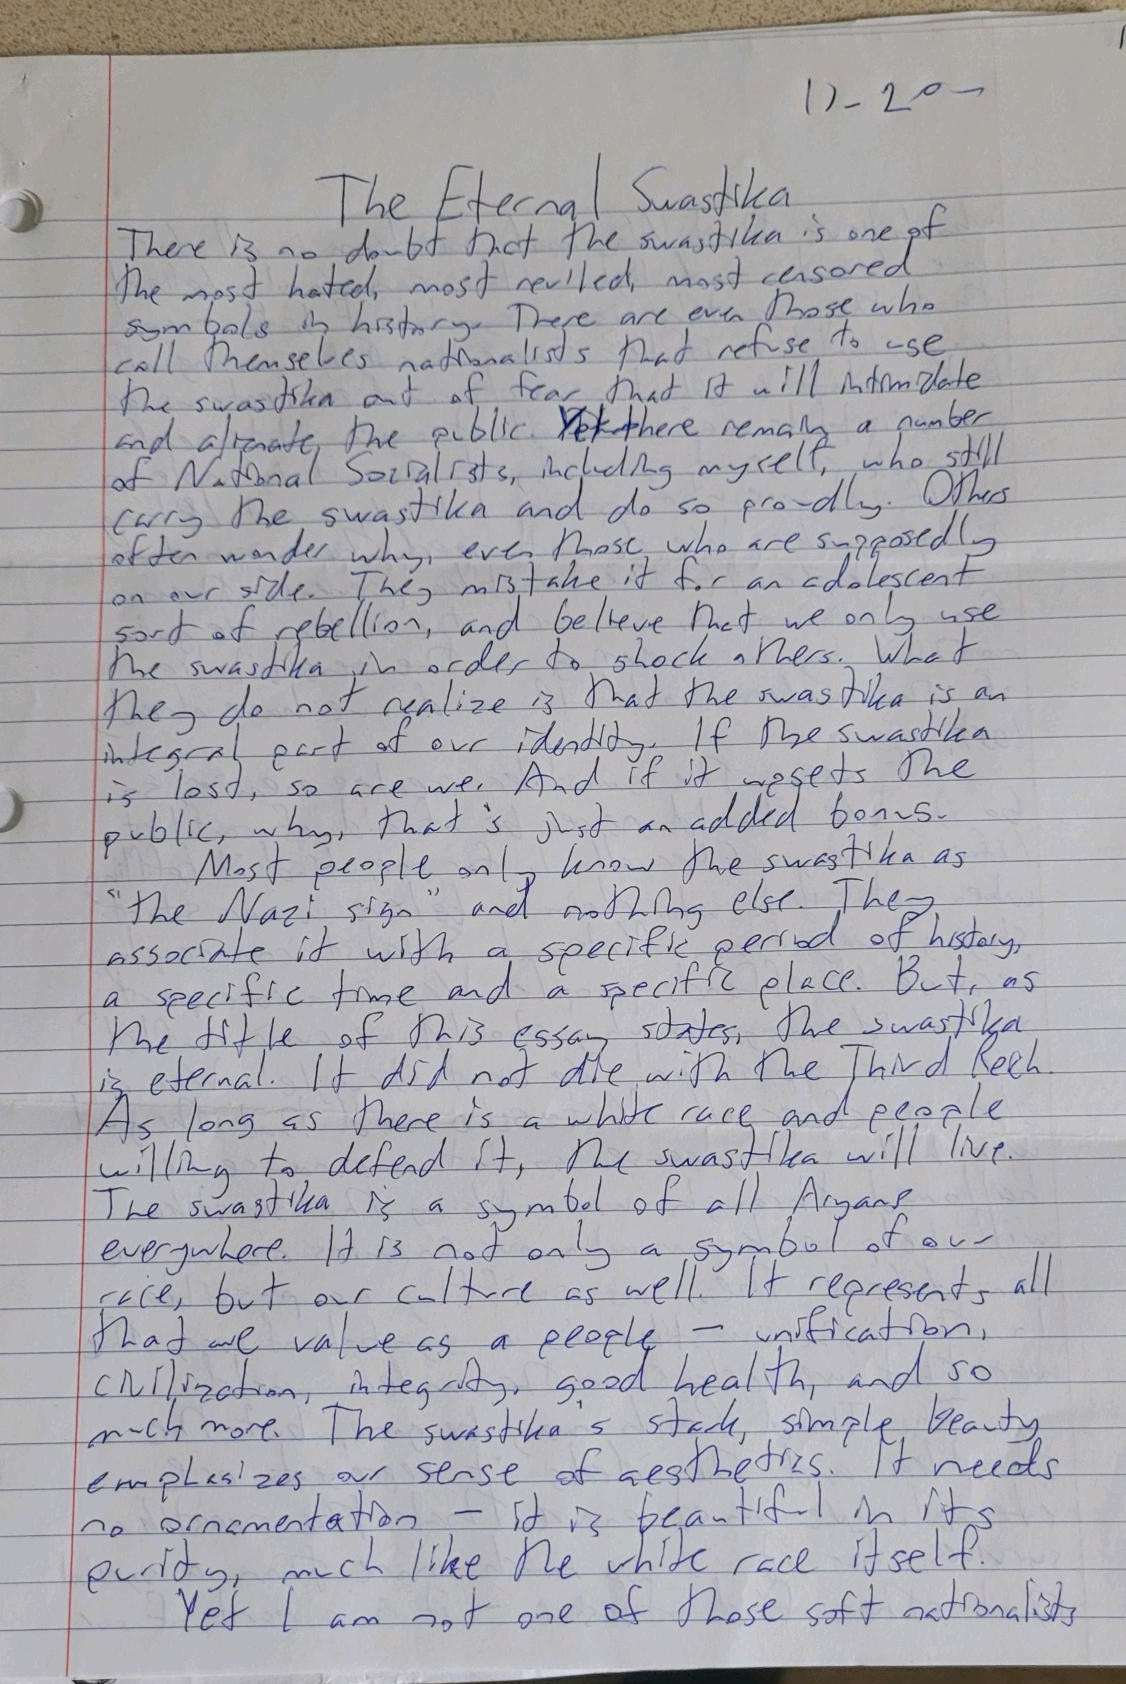 The Eternal Swastika
There is no doubt that the swastika is one of
the most hated, most reviled, most censored
symbols in history. There are even those who
call themselves nationalists that refuse to use
the swastika out of fear that it will intimidate
and alienate the public. Yet there remain a number
of National Socialists, including myself, who still
carry the swastika and do so proudly. Others
often wonder why, even those who are supposedly
on our side. They mistake it for an adolescent
sort of rebellion, and believe that we only use
the swastika in order to shock others. What
they do not realize is that the swastika is an
integral part of our identity. If the swastika
is lost, so are we. And if it upsets the
public, why, that's just an added bonus.
Most people only know the swastika as
"the Nazi sign" and nothing else. They
associate it with a specific period of history,
a specific time and a specific place. But, as
the title of this essay states, the swastika
is eternal. It did not die with the Third Reich.
As long as there is a white race and people
willing to defend it, the swastika will live.
The swastika is a symbol of all Aryans
everywhere. It is not only a symbol of our
race, but our culture as well. It represents all
that we value as a people – unification,
civilization, integrity, good health, and so
much more. The swastika's stark, simple beauty
emphasizes our sense of aesthetics. It needs
no ornamentation – it is beautiful in its
purity, much like the white race itself.
Yet I am not one of those soft nationalists